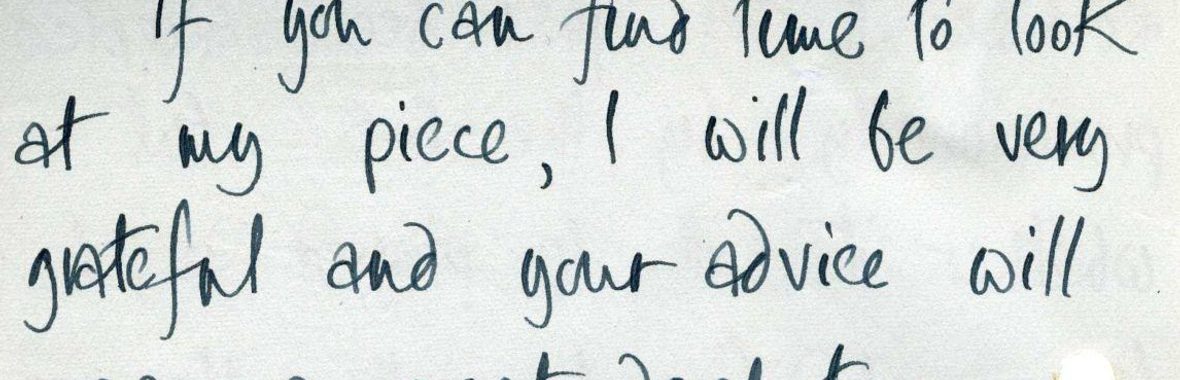 If you can find time to look
at my piece, I will be very
grateful and your advice will